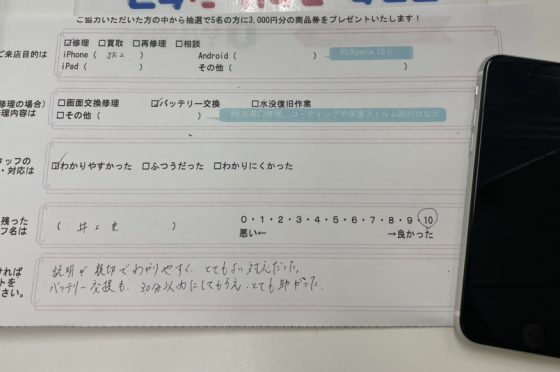 ご協力いただいた方の中から抽選で5名の方に3,000円分の商品券をプレゼントいたします！
ご来店目的は
☑修理 □買取 □再修理 □相談
iPhone ( ) Android ( ) 例:Xperia 10 Ⅱ
iPad ( ) その他 ( )
修理の場合) □画面交換修理 ☑バッテリー交換 □水没復旧作業
理内容は □その他 ( )
タッフの
・対応は ☑わかりやすかった □ふつうだった □わかりにくかった
残った
フ名は
0・1・2・3・4・5・6・7・8・9・10
悪い← →良かった
ければ
トを
さい。
説明が親切でわかりやすく、とてもよい対応だった。
バッテリー交換も、30分以内にしてもらえ、とても助かった。